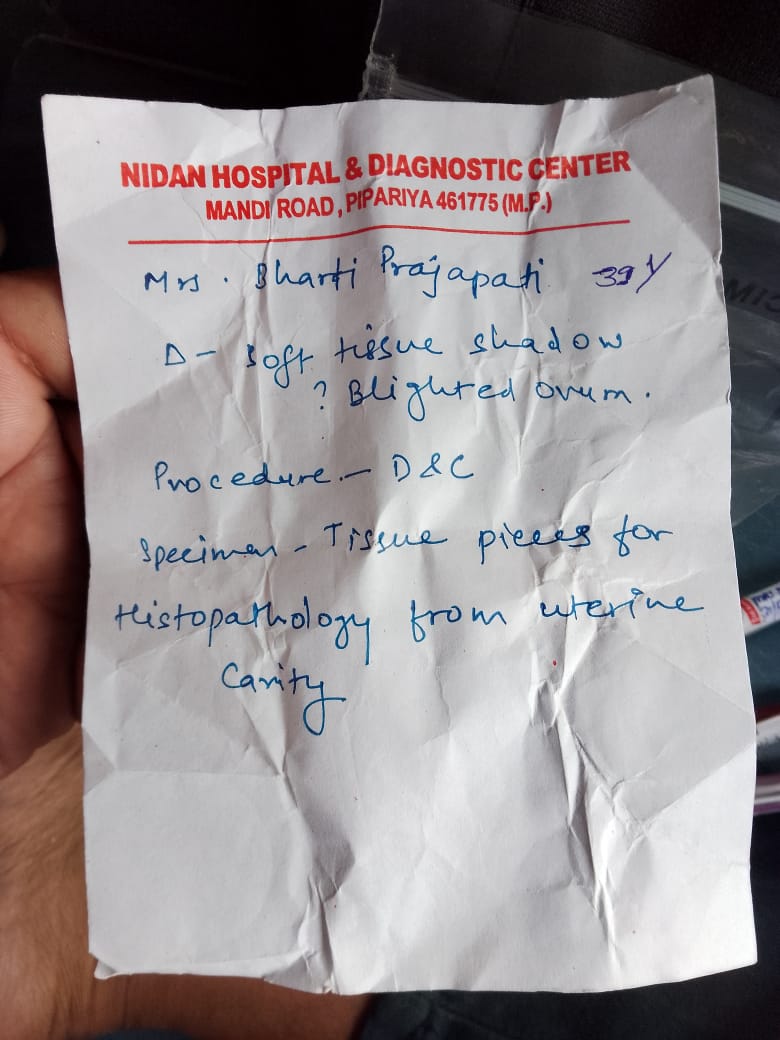 NIDAN HOSPITAL & DIAGNOSTIC CENTER
MANDI ROAD, PIPARIYA 461775 (M.P.)
Mrs. Bharti Prajapati 39Y
D - Soft tissue shadow
? Blighted ovum.
Procedure - D&C
Specimen - Tissue pieces for
Histopathology from uterine
Cavity